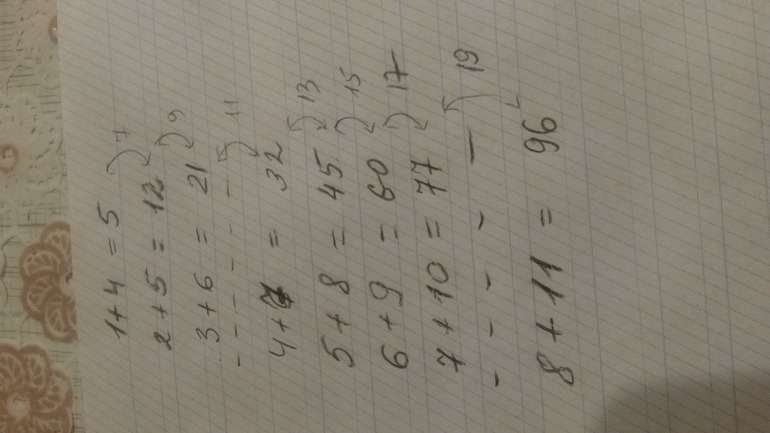 1+4=5
7
2+5=12
9
3+6=21
11
- - - - - - -
4+7=32
13
5+8=45
15
6+9=60
17
7+10=77
19
- - - - - -
8+11=96